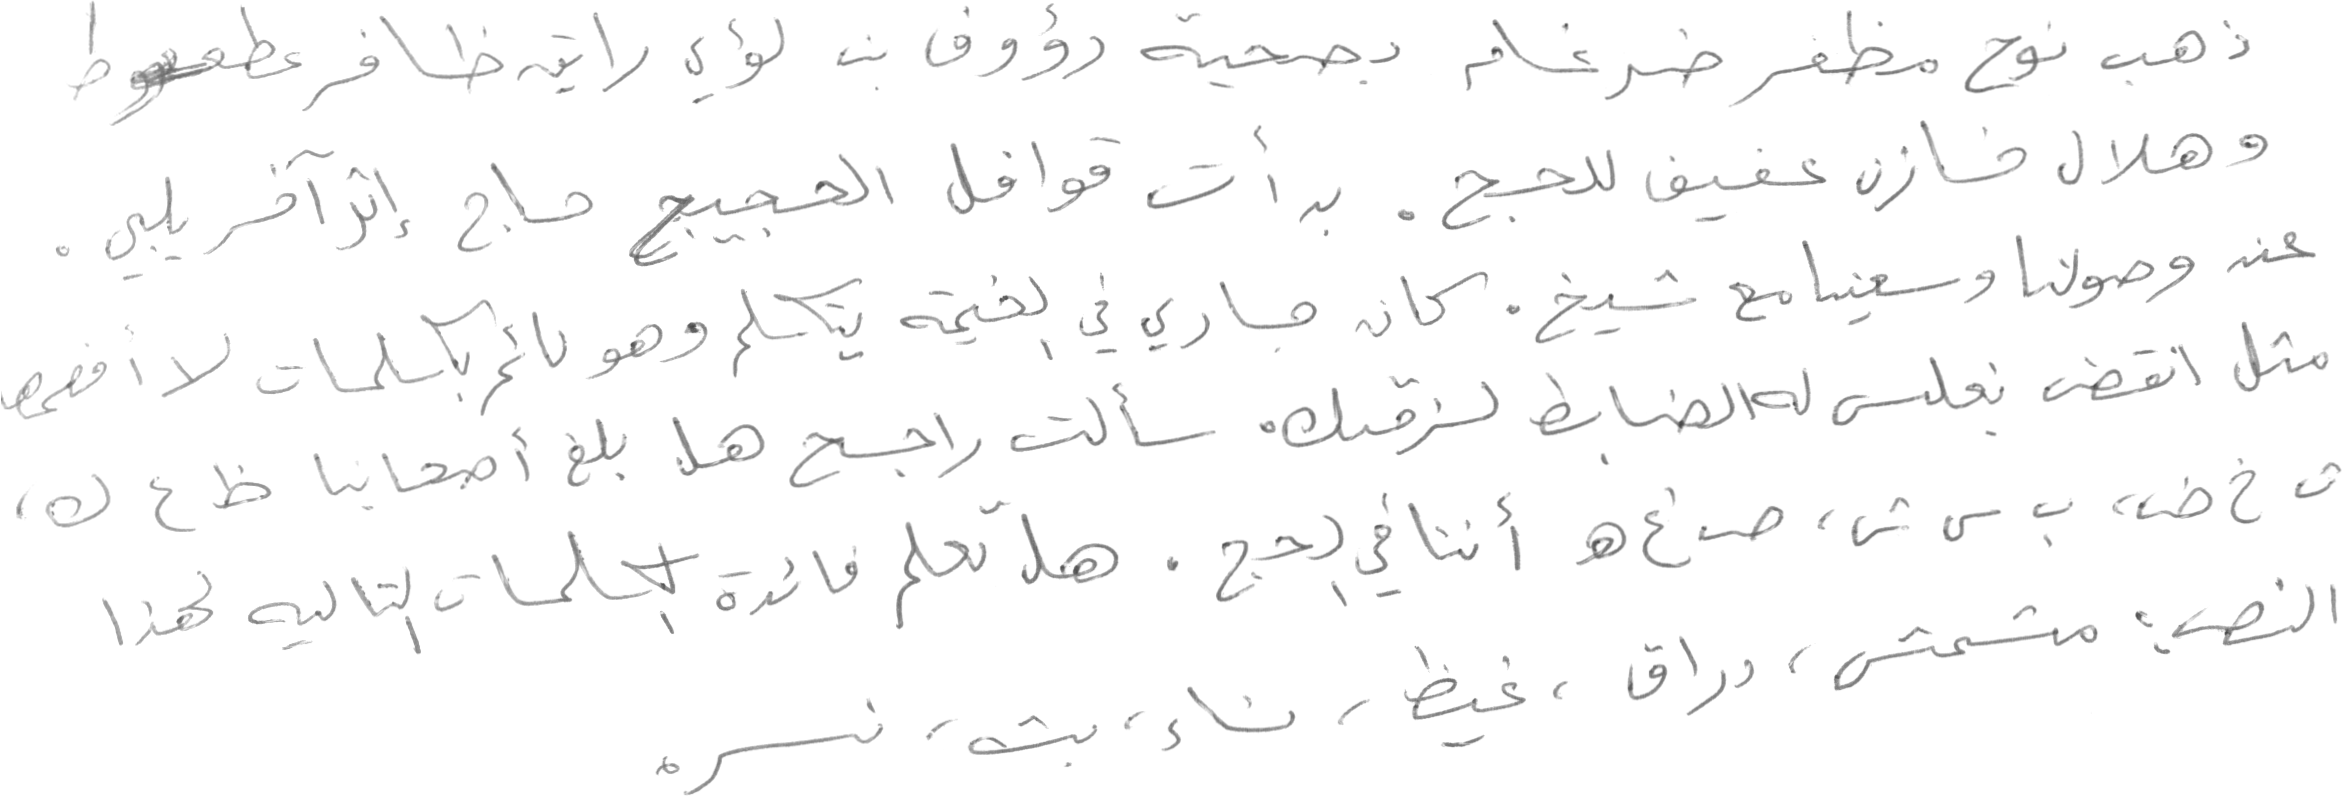 ذهب نوح مظفر ضرغام بصحبة رؤوف بن لؤي راتبه ظافر عطعوط
وهلال خازن عفيف للحج. بدأت قوافل الحجيج حاج إثر آخر يلبي.
عند وصولنا وسعينا مع شيخ. كان جاري في الخيمة يتكلم وهو نائم بكلمات لا أفهمها
مثل انقض بغلس له الضابط لنرقبك. سألت راجح هل بلغ أصحابنا ظ ع ك،
ث خ ض، ب س ش، ص غ ه أننا في الحج. هل تعلم فائدة الكلمات التالية لهذا
النص: مشمش، دراق، غيظ، شاء، بث، نسر.